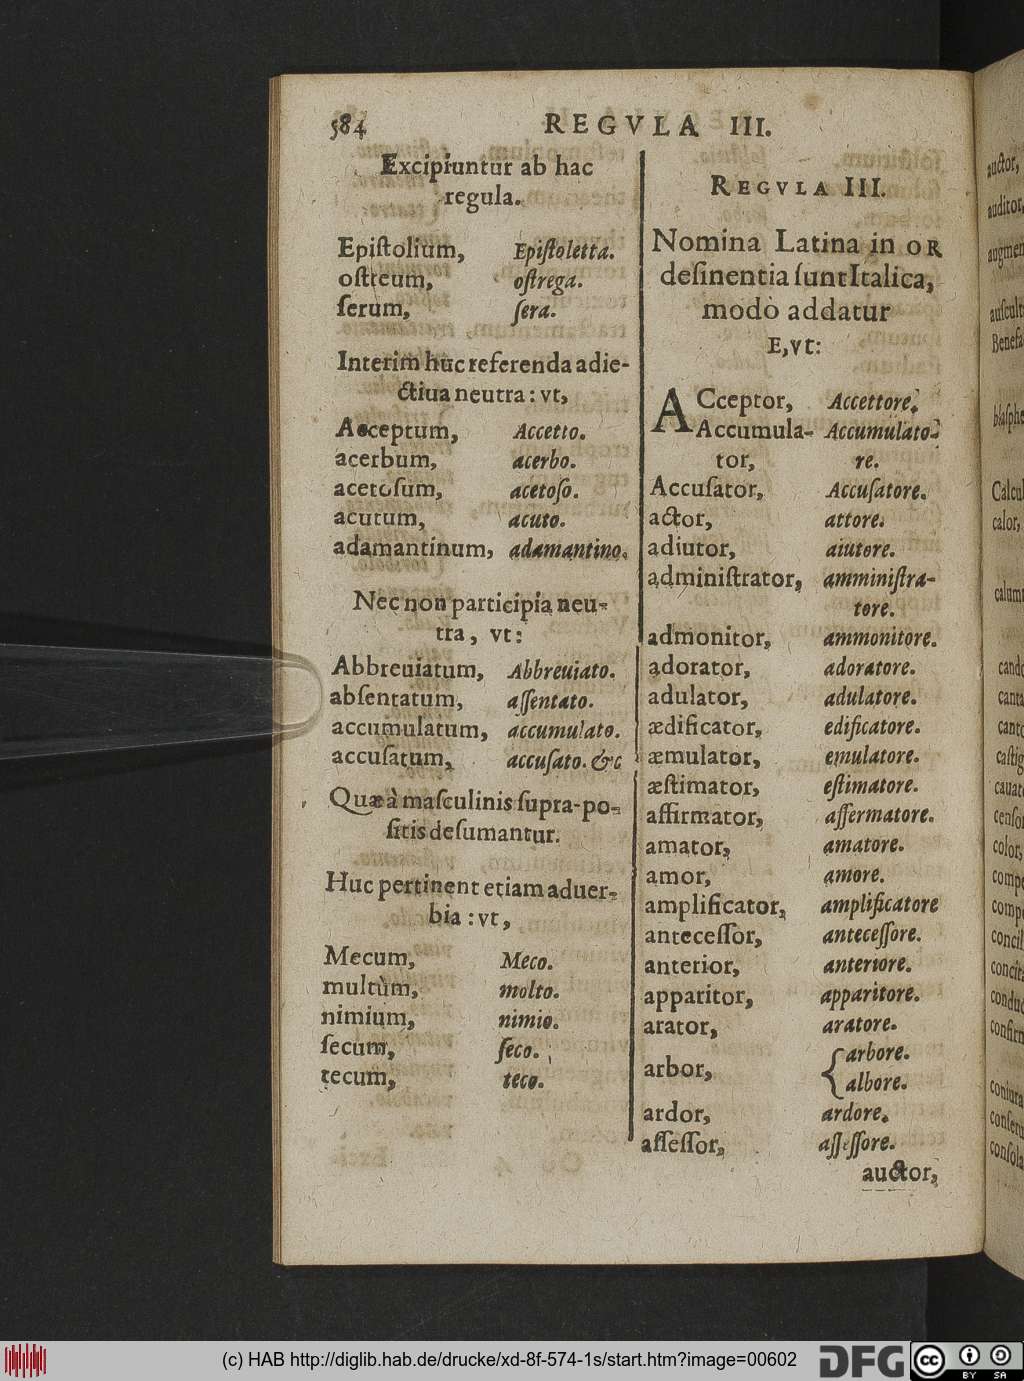 584
REGVLA III.
Excipiuntur ab hac
regula.
Epiſtolium, Epiſtoletta.
oſtreum, oſtrega.
ſerum, ſera.
Interim huc referenda adie-
ctiua neutra: vt,
Acceptum, Accetto.
acerbum, acerbo.
acetoſum, acetoſo.
acutum, acuto.
adamantinum, adamantino.
Nec non participia neu-
tra, vt:
Abbreuiatum, Abbreuiato.
abſentatum, aſſentato.
accumulatum, accumulato.
accuſatum, accuſato. &c
Quæ à maſculinis ſupra-po-
ſitis deſumantur.
Huc pertinent etiam aduer-
bia: vt,
Mecum, Meco.
multùm, molto.
nimium, nimio.
ſecum, ſeco.
tecum, teco.
REGVLA III.
Nomina Latina in OR
deſinentia ſunt Italica,
modò addatur
E, vt:
ACceptor, Accettore.
Accumula- Accumulato-
tor, re.
Accuſator, Accuſatore.
actor, attore.
adiutor, aiutore.
adminiſtrator, amminiſtra-
tore.
admonitor, ammonitore.
adorator, adoratore.
adulator, adulatore.
ædificator, edificatore.
æmulator, emulatore.
æſtimator, eſtimatore.
affirmator, affermatore.
amator, amatore.
amor, amore.
amplificator, amplificatore
anteceſſor, anteceſſore.
anterior, anteriore.
apparitor, apparitore.
arator, aratore.
arbor, { arbore.
albore.
ardor, ardore.
aſſeſſor, aſſeſſore.
auctor,
auctor,
auditor,
augmen
auſcult
Benefa
blaſphe
Calcul
calor,
calum
cando
canta
canto
caſtig
cauat
cenſo
color,
compe
compo
concil
concit
conduc
confirm
coniura
conſeru
conſola
(c) HAB http://diglib.hab.de/drucke/xd-8f-574-1s/start.htm?image=00602
DFG
cc BY SA